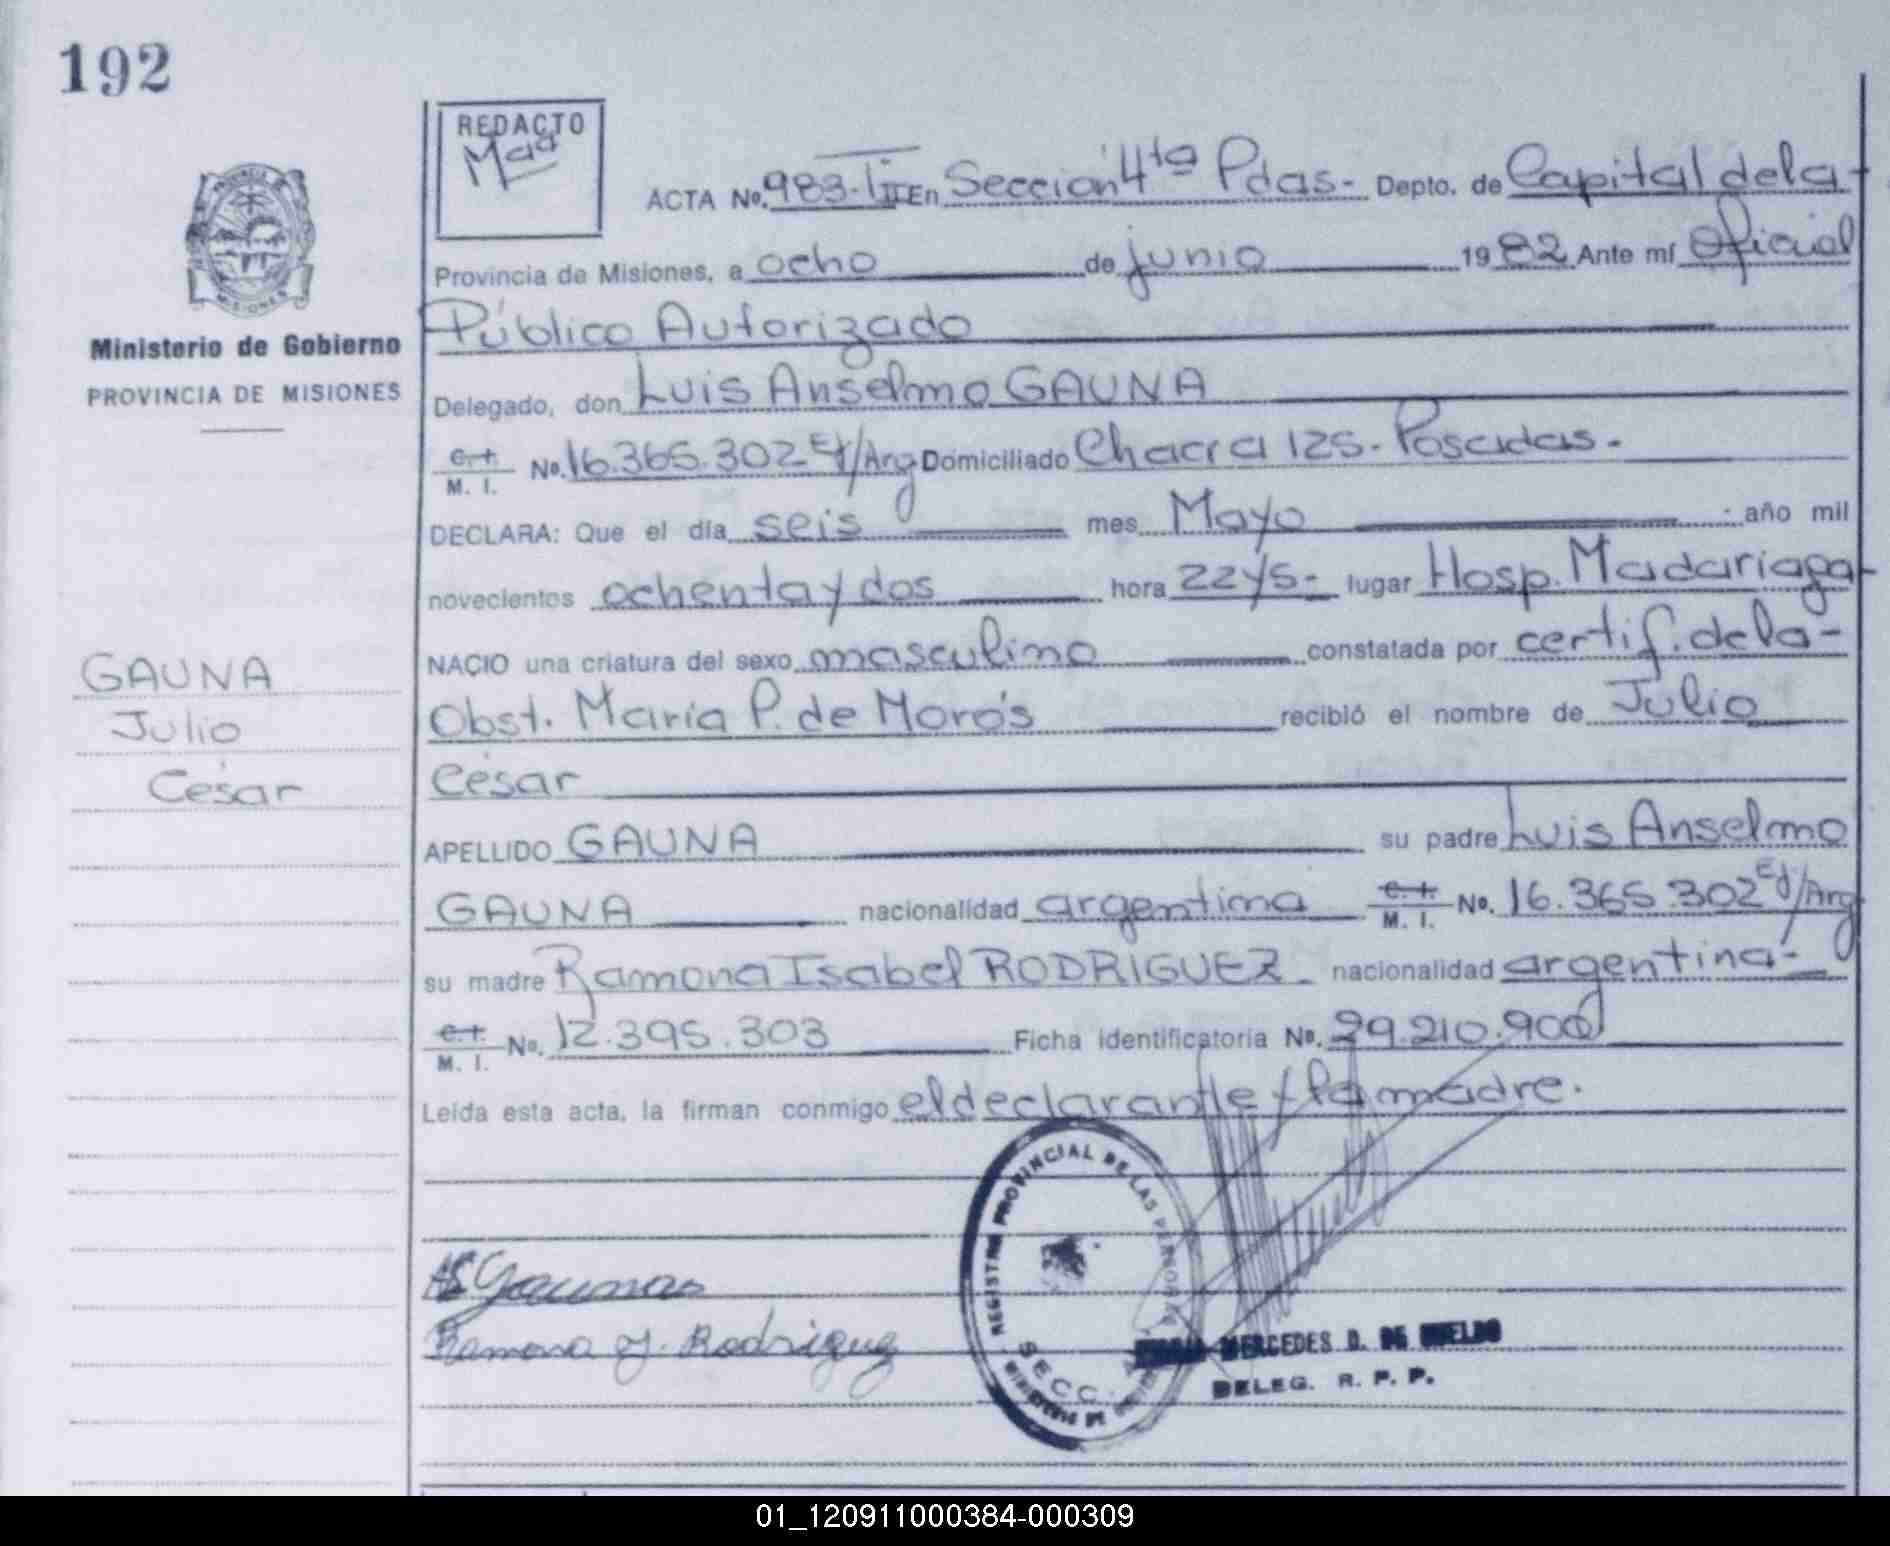 192
REDACTO
PROVINCIA DE
MISIONES
Ministerio de Gobierno
PROVINCIA DE MISIONES
ACTA No. 983-III En Sección 4ta Pdas- Depto. de Capital de la-
Provincia de Misiones, a ocho de junio 1982 Ante mí Oficial
Público Autorizado
Delegado, don Luis Anselmo GAUNA
C. I. / M. I. No. 16.365.302 Ej/Arg Domiciliado Chacra 125- Posadas-
DECLARA: Que el día seis mes Mayo año mil
novecientos ochenta y dos hora 22y5- lugar Hosp. Madariaga-
NACIO una criatura del sexo masculino constatada por certif. de la-
Obst. María P. de Morós recibió el nombre de Julio
César
GAUNA
Julio
César
APELLIDO GAUNA su padre Luis Anselmo
GAUNA nacionalidad argentina C. I. / M. I. No. 16.365.302 Ej/Arg
su madre Ramona Isabel RODRIGUEZ- nacionalidad argentina-
C. I. / M. I. No. 12.395.303 Ficha identificatoria No. 29.210.900
Leída esta acta, la firman conmigo el declarante y la madre.
Gauna
Ramona I. Rodriguez
REGISTRO PROVINCIAL DE LAS PERSONAS
SECC.
MERCEDES D. DE
DELEG. R. P. P.
01_120911000384-000309